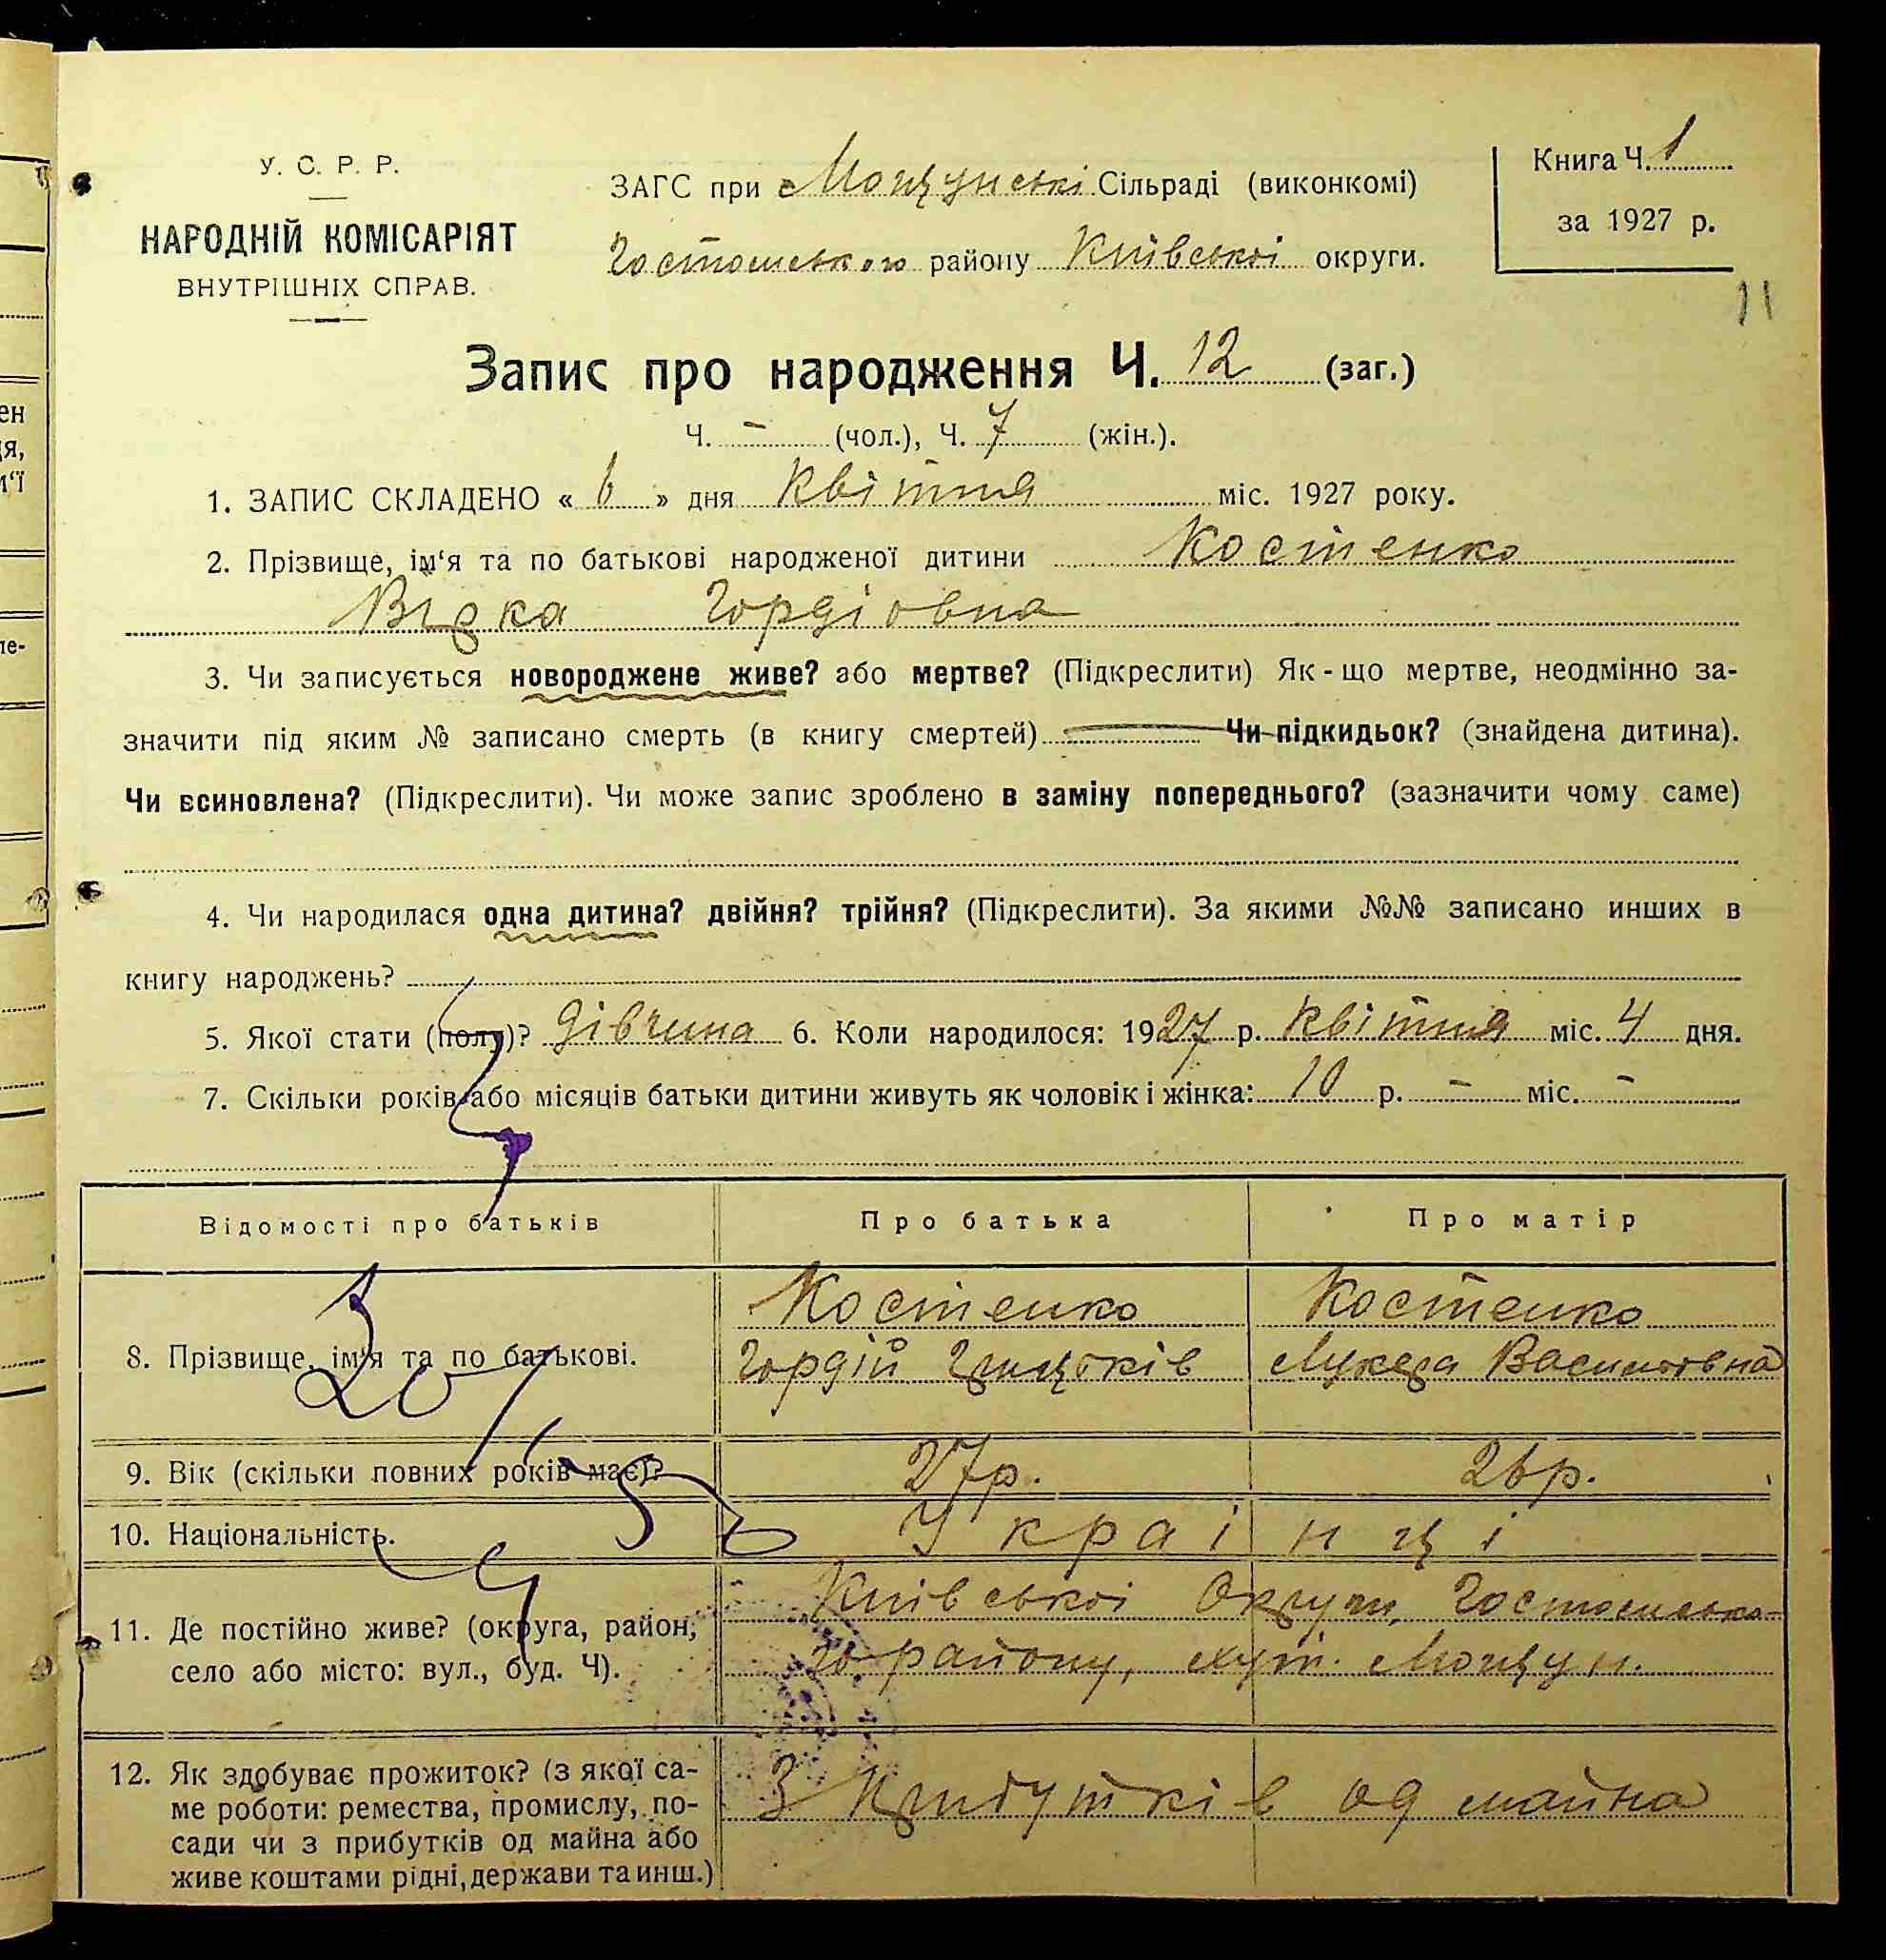 У. С. Р. Р.
НАРОДНІЙ КОМІСАРІЯТ
ВНУТРІШНІХ СПРАВ.
ЗАГС при Мощунські Сільраді (виконкомі)
Гостомського району Київської округи.
Книга Ч. 1
за 1927 р.
11
Запис про народження Ч. 12 (заг.)
Ч. – (чол.), Ч. 7 (жін.).
1. ЗАПИС СКЛАДЕНО « 6 » дня Квітня міс. 1927 року.
2. Прізвище, ім‘я та по батькові народженої дитини Костенко
Гордіовна
3. Чи записується новороджене живе? або мертве? (Підкреслити) Як-що мертве, неодмінно за-
значити під яким № записано смерть (в книгу смертей) Чи підкидьок? (знайдена дитина).
Чи всиновлена? (Підкреслити). Чи може запис зроблено в заміну попереднього? (зазначити чому саме)
4. Чи народилася одна дитина? двійня? трійня? (Підкреслити). За якими №№ записано инших в
книгу народжень?
5. Якої стати (полу)? дівчина 6. Коли народилося: 1927 р. Квітня міс. 4 дня.
7. Скільки років або місяців батьки дитини живуть як чоловік і жінка: 10 р. – міс. –
Відомості про батьків Про батька Про матір
8. Прізвище, ім‘я та по батькові.
Костенко
Гордій
Костенко
Василювна
9. Вік (скільки повних років має)? 27р. 26р.
10. Національність. Украінці
11. Де постійно живе? (округа, район, село або місто: вул., буд. Ч).
Київської Округи, Гостомсько-
го району, хут. Мощун.
12. Як здобуває прожиток? (з якої са-
ме роботи: ремества, промислу, по-
сади чи з прибутків од майна або
живе коштами рідні, держави та инш.)
З прибутків од майна